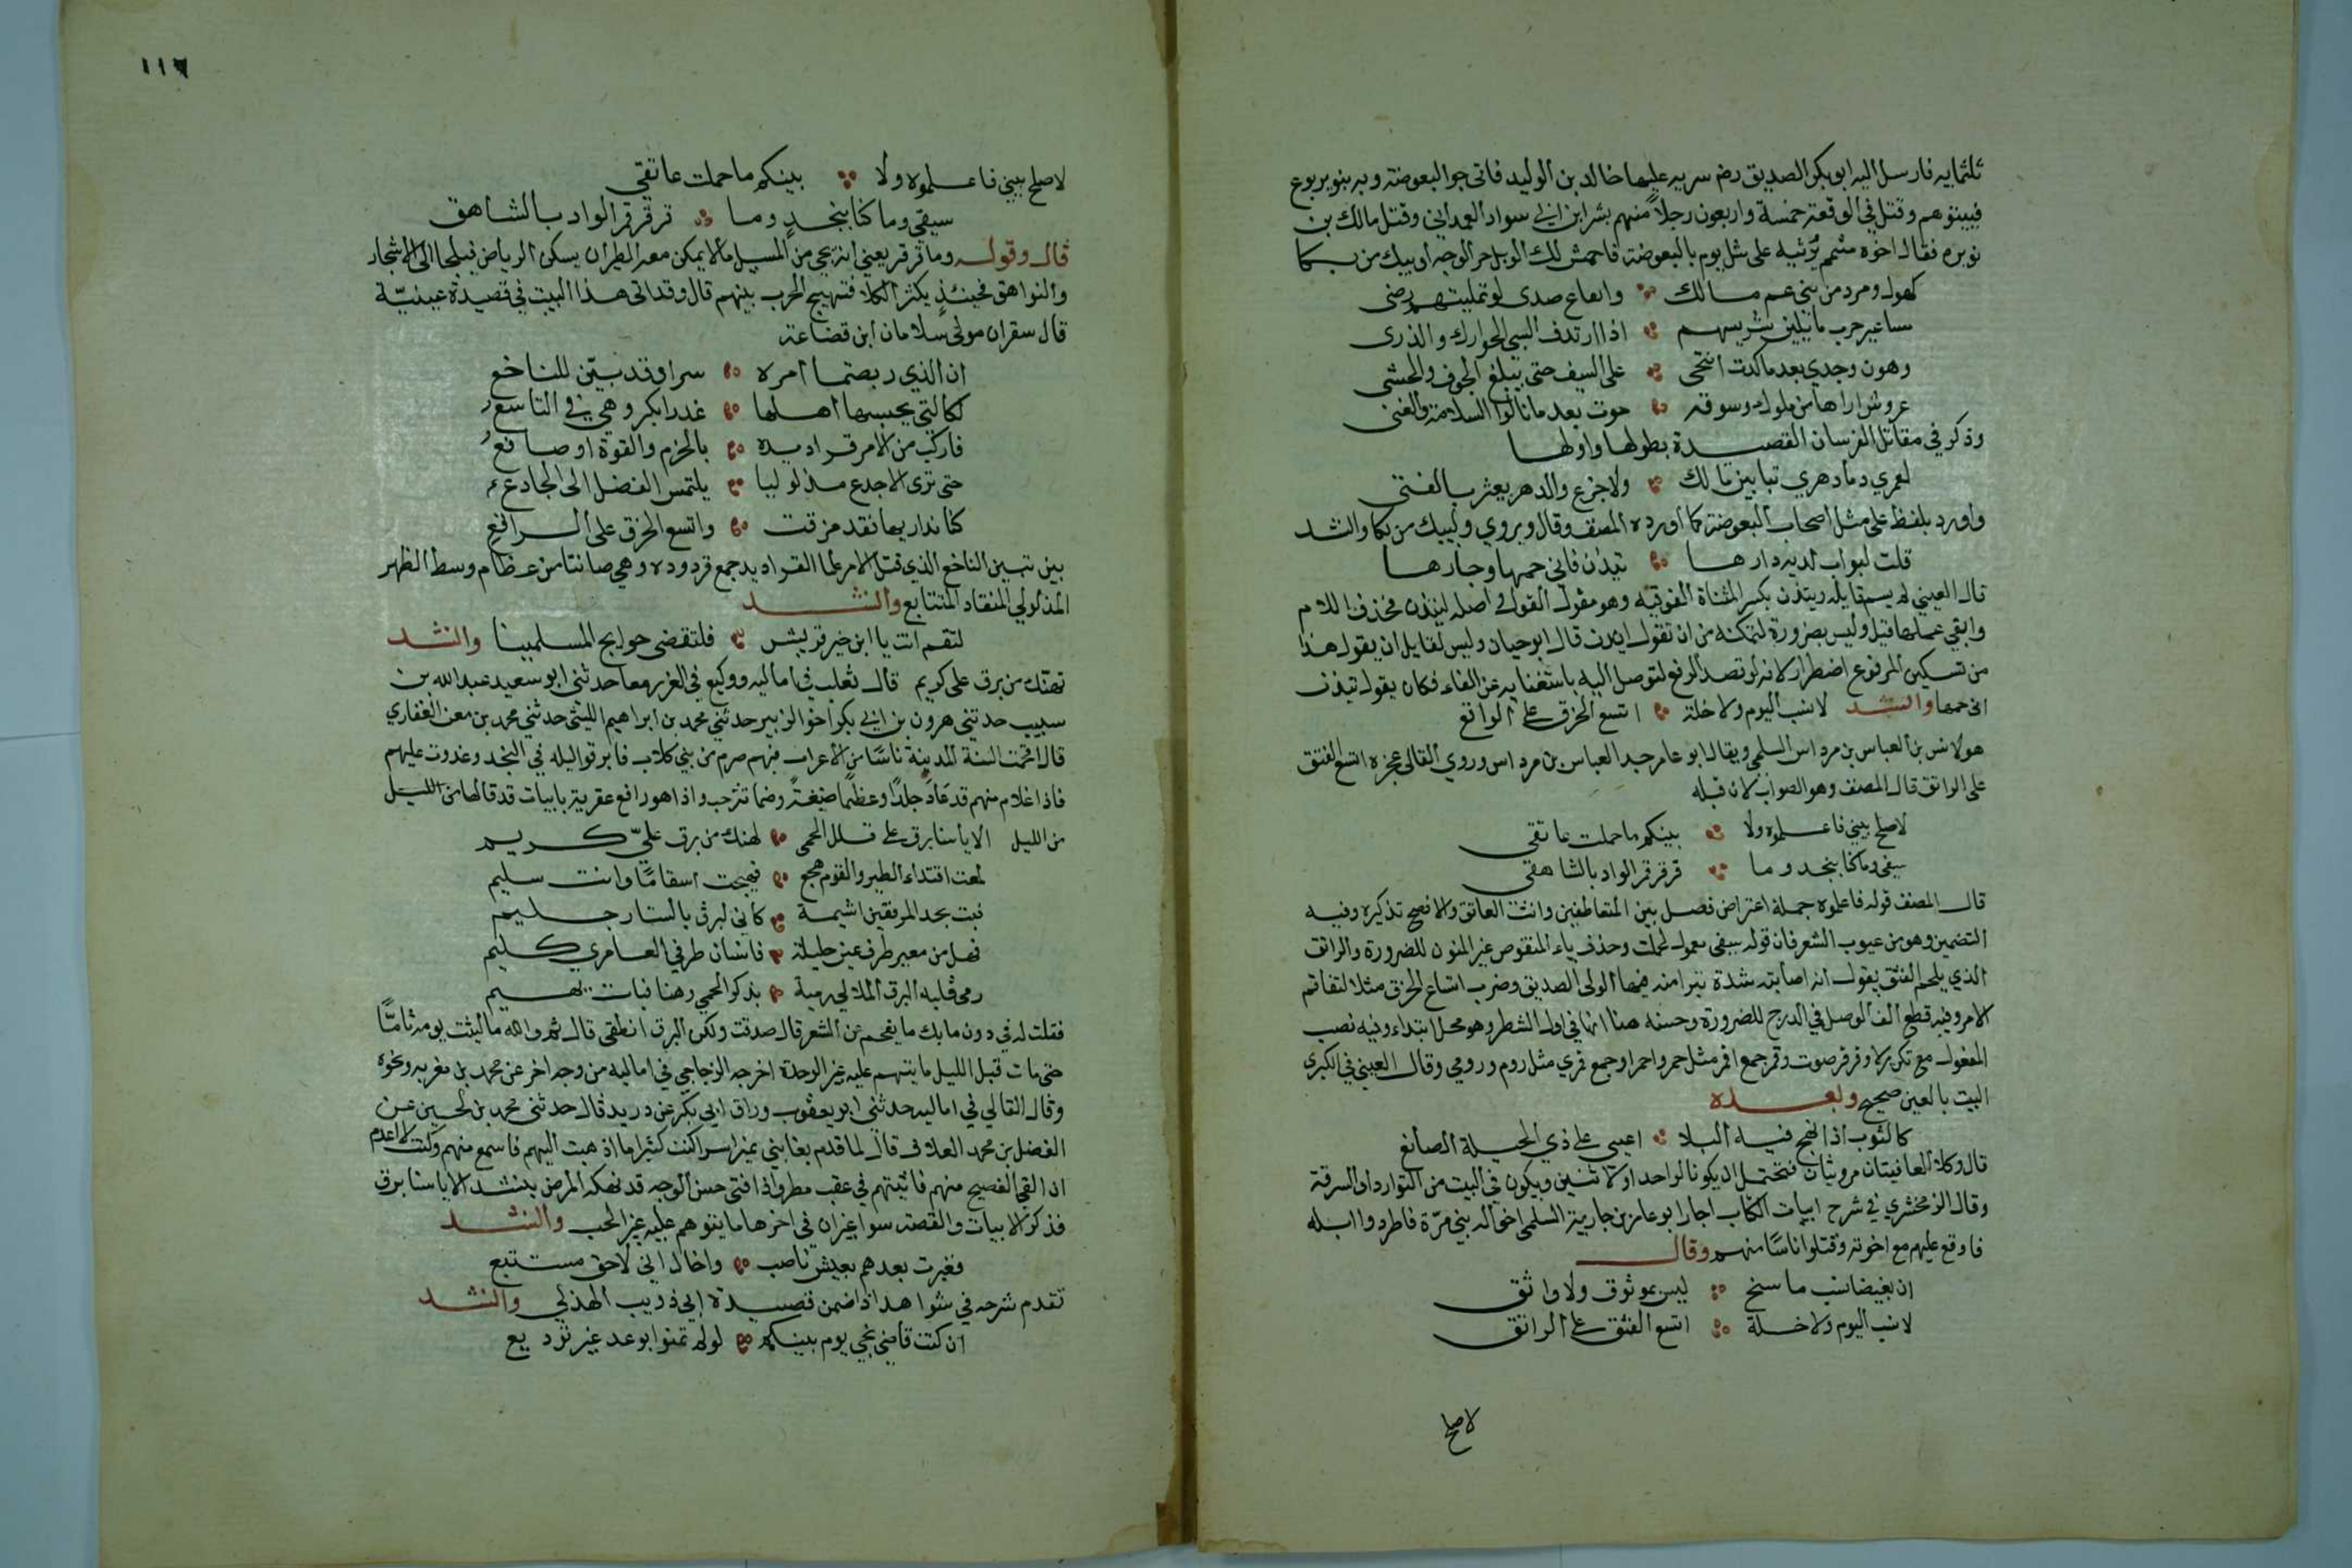 ثلثمايه فارسل اليه ابو بكر الصديق رضه سريه عليها خالد بن الوليد فاتى جو البعوضة وبه بنو يربوع
فبيتوهم وقتل في الوقعة خمسة واربعون رجلاً منهم بشر ابن ابي سواد الغداني وقتل مالك بن
نويره فقال اخوه متمم يرثيه على مثل يوم بالبعوضة فاخمشي لك الويل حر الوجه او يبك من بكا
كهول ومرد من بني عم مالك وايفاع صدق لو تمليتهم رضى
مساعير حرب ما يلين شريسهم اذا ارتدف السبي الحوارك والذرى
وهون وجدي بعد ما كدت انتحي على السيف حتى يبلغ الجوف والحشى
عروش اراها من ملوك وسوقه حوت بعد ما نالوا السلامة والغنى
وذكر في مقاتل الفرسان القصيدة بطولها واولها
لعمري وما دهري بتابين مالك ولا جزع والدهر يعثر بالفتى
واورد بلفظ على مثل اصحاب البعوضة كما اورده المصنف وقال ويروي وليبك من بكا وانشد
قلت لبواب لديه دارها تيذن فاني حمها وجارها
قال العيني لم يسم قايله وتيذن بكسر المثناة الفوقيه وهو مقول القول اصله لتيذن فحذف اللام
وابقي عملها قيل وليس بضرورة لتمكنه من ان تقول ايذن قال ابو حيان وليس لقايل ان يقول هذا
من تسكين المرفوع اضطرارا لانه لو قصد الرفع لتوصل اليه باستغنايه عن الفاء فكان يقول تيذن
اني حمها وانشد لا نسب اليوم ولا خلة اتسع الخرق على الراقع
هو لانس بن العباس بن مرداس السلمي ويقال ابو عامر جد العباس بن مرداس وروي القالي عجزه اتسع الفتق
على الراتق قال المصنف وهو الصواب لان قبله
لا صلح بيني فاعلموه ولا بينكم ما حملت عاتقي
سيفي وما كنا بنجد وما قرقر قمر الواد بالشاهق
قال المصنف قوله فاعلموه جملة اعتراض فصل بين المتعاطفين وانث العاتق والافصح تذكيره وفيه
التضمين وهو من عيوب الشعر فان قوله سيفي معمول لحملت وحذف ياء المنقوص غير المنون للضرورة والراتق
الذي يلحم الفتق يقول انه اصابته شدة تبرا منه فيها الولي الصديق وضرب اتساع الخرق مثلا لتفاقم
الامر وفيه قطع الف الوصل في الدرج للضرورة وحسنه هنا انها في اول الشطر وهو محل ابتداء وفيه نصب
المفعول مع تكرير لا وقرقر صوت وقمر جمع اقمر مثل حمر واحمر او جمع قمري مثل روم ورومي وقال العيني في الكبرى
البيت بالعين صحيح وبعده
كالثوب اذ انهج فيه البلا اعيى على ذي الحيلة الصانع
قال وكلا القافيتان مرويتان فتحتمل ان يكونا لواحد او لاثنين ويكون في البيت من التوارد او السرقة
وقال الزمخشري في شرح ابيات الكتاب اجار ابو عامر بن جارية السلمي اخواله بني مرّة فاطردوا ابله
فاوقع عليهم مع اخوته وقتلوا ناسًا منهم وقال
ان بغيضا نسب ما سنح ليس بموثوق ولا واثق
لا نسب اليوم ولا خلة اتسع الفتق على الراتق
لا صلح
١١٦
لا صلح بيني فاعلموه ولا بينكم ما حملت عاتقي
سيفي وما كنا بنجد وما قرقر قمر الواد بالشاهق
قال وقوله وما قرقر يعني انه يجي من المسيل ما لا يمكن معه الطيران يسكن الرياض فيلجا الى الاشجار
والنواهق فحينئذ يكثر الكلا فتهيج الحرب بينهم قال وقد اتى هذا البيت في قصيدة عينيّة
قال سقران مولى سلامان ابن قضاعة
ان الذي ربصتما امره سرا وقد بيّن للناخع
لكالتي يحسبها اهلها عذرا بكر وهي في التاسع
فاركب من الامر قراديده بالحزم والقوة او صانع
حتى ترى الاجدع مذلوليا يلتمس الفضل الى الجادع
كنا نداريها فقد مزقت واتسع الخرق على الراقع
بين تبين الناخع الذي قتل الامر علما القراديد جمع قردوده وهي ما نتا من عظام وسط الظهر
المذلولي المنقاد المتتابع وانشد
لتقم انت يا ابن خير قريش فلتقضي حوايج المسلمينا وانشد
لهنك من برق علي كريم قال ثعلب في اماليه ووكيع في الغرر معا حدثني ابو سعيد عبد الله بن
سبيب حدثني هرون بن ابي بكر اخو الزبير حدثني محمد بن ابراهيم الليثي حدثني محمد بن معن الغفاري
قال اقحمت السنة المدينة ناسًا من الاعراب منهم صرم من بني كلاب فابرقوا ليله في النجد وغدوت عليهم
فاذا غلام منهم قد عاد جلدًا وعظمًا ضيعةً وضما تترحب واذا هو رافع عقريته بابيات قد قالها من الليل
من الليل الا يا سنا برق على قلل الحمى لهنك من برق عليّ كريم
لمعت اقتداء الطير والقوم هجع فهيجت اسقامًا وانت سليم
فبت بحد المرفقين اشيمه كاني لبرق بالستار حميم
فهل من معير طرف عين خلية فانسان طرفي العامري كليم
رمى قلبه البرق الملالي رمية بذكر الحمي وهنا فبات يهيم
فقلت له في دون ما بك ما يفحم عن الشعر قال صدقت ولكن البرق انطقني قال ثم والله ما لبث يومه تامًّا
حتى مات قبل الليل ما يتهم عليه غير الوجد اخرجه الزجاجي في اماليه من وجه اخر عن محمد بن معن به ونحوه
وقال القالي في اماليه حدثني ابو يعقوب وراق ابي بكر عن دريد قال حدثني محمد بن الحسين عن
الفضل بن محمد العلاف قال لما قدم بغا ببني نمير اسرا كنت كثيرا ما اذهب اليهم فاسمع منهم وكنت لا اعدم
ان القى الفصيح منهم فاتيتهم في عقب مطر واذا فتى حسن الوجه قد نهكه المرض ينشد الا يا سنا برق
فذكر الابيات والقصة سوا غير ان في اخرها ما يتوهم عليه غير الحب وانشد
فغبرت بعدهم بعيش ناصب واخال اني لاحق مستتبع
تقدم شرحه في شواهد اذا ضمن قصيدة ابي ذويب الهذلي وانشد
ان كنت قاضي نحبي يوم بينكم لو لم تمنوا بوعد غير توديع